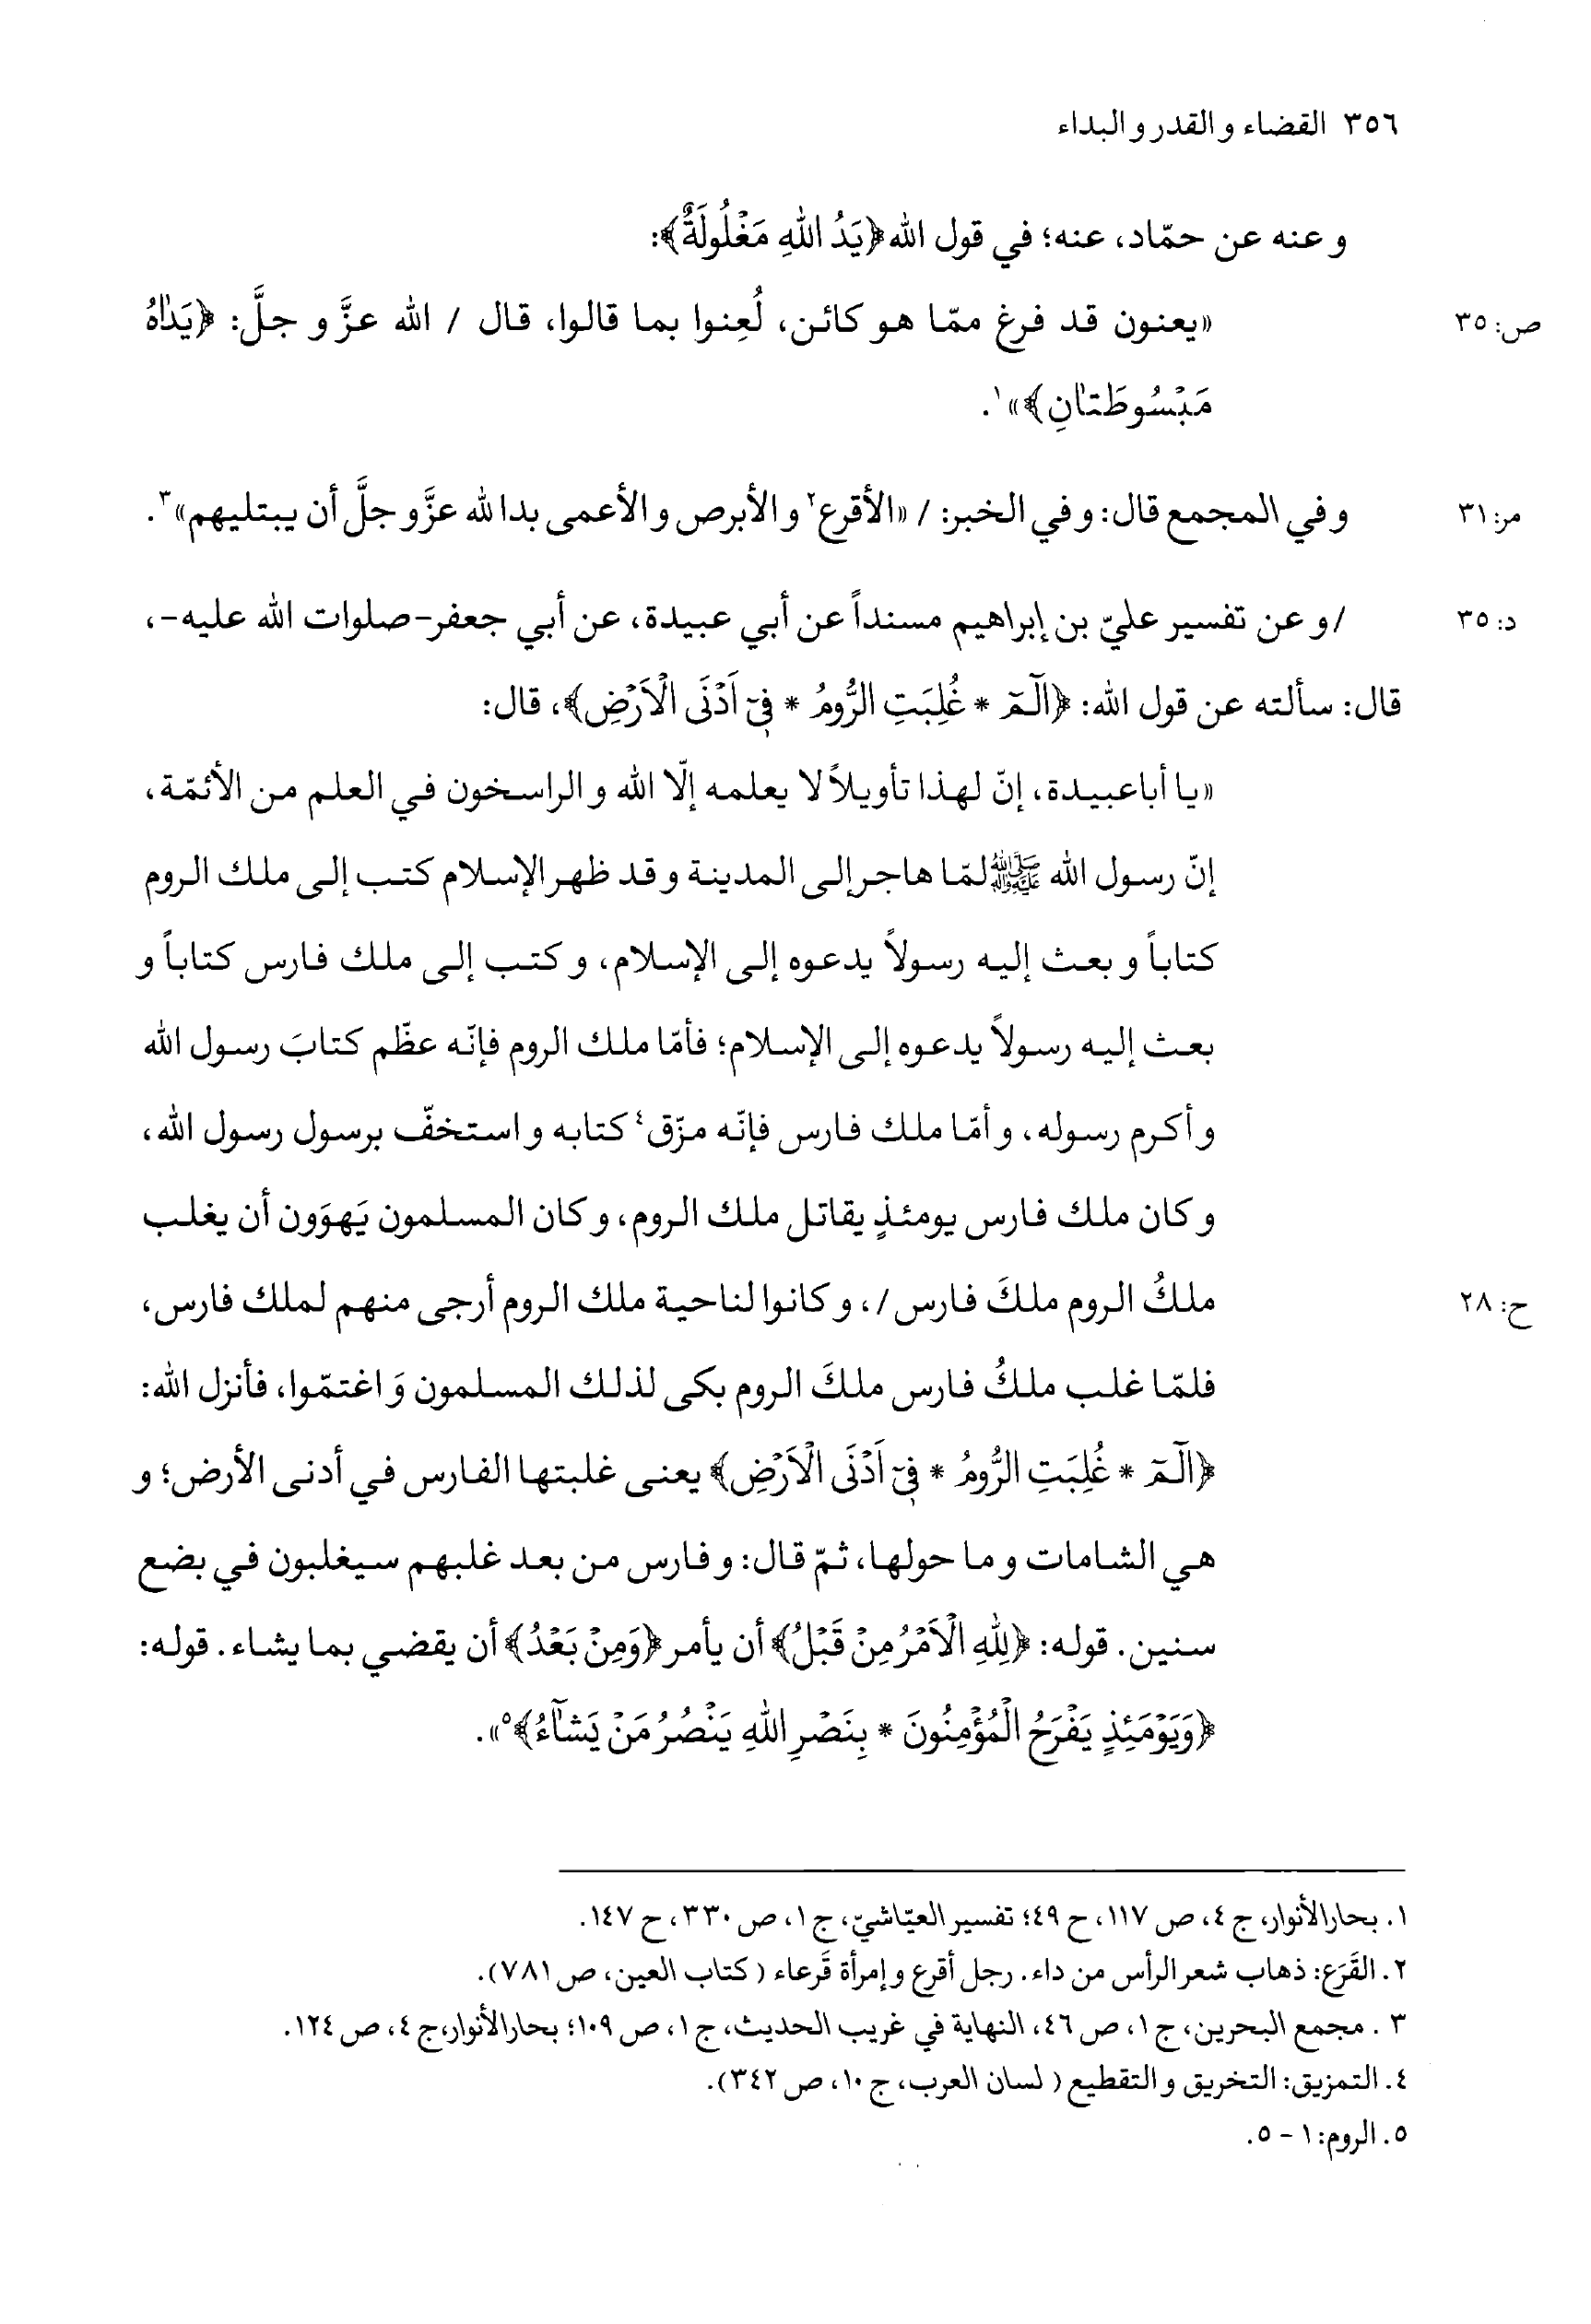 ٣٥٦ القضاء و القدر و البداء
و عنه عن حمّاد، عنه؛ في قول الله ﴿يَدُ اللهِ مَغْلُولَةٌ﴾:
«يعنون قد فرغ ممّا هو كائن، لُعِنوا بما قالوا، قال / الله عزَّ و جلَّ: ﴿يَدٰاهُ
ص: ٣٥
مَبْسُوطَتٰانِ﴾»١.
و في المجمع قال: و في الخبر: / «الأقرع٢ و الأبرص و الأعمى بدا لله عزَّ و جلَّ أن يبتليهم»٣.
مر: ٣١
/ و عن تفسير عليّ بن إبراهيم مسنداً عن أبي عبيدة، عن أبي جعفر -صلوات الله عليه-،
د: ٣٥
قال: سألته عن قول الله: ﴿الٓمٓ * غُلِبَتِ الرُّومُ * فِيٓ اَدْنَى الْاَرْضِ﴾، قال:
«يا أباعبيدة، إنّ لهذا تأويلاً لا يعلمه إلّا الله و الراسخون في العلم من الأئمّة،
إنّ رسول الله ﷺ لمّا هاجر إلى المدينة و قد ظهر الإسلام كتب إلى ملك الروم
كتاباً و بعث إليه رسولاً يدعوه إلى الإسلام، و كتب إلى ملك فارس كتاباً و
بعث إليه رسولاً يدعوه إلى الإسلام؛ فأمّا ملك الروم فإنّه عظّم كتابَ رسول الله
و أكرم رسوله، و أمّا ملك فارس فإنّه مزّق٤ كتابه و استخفّ برسول رسول الله،
و كان ملك فارس يومئذٍ يقاتل ملك الروم، و كان المسلمون يَهوَون أن يغلب
ملكُ الروم ملكَ فارس /، و كانوا لناحية ملك الروم أرجى منهم لملك فارس،
ح: ٢٨
فلمّا غلب ملكُ فارس ملكَ الروم بكى لذلك المسلمون وَ اغتمّوا، فأنزل الله:
﴿الٓمٓ * غُلِبَتِ الرُّومُ * فِيٓ اَدْنَى الْاَرْضِ﴾ يعنى غلبتها الفارس في أدنى الأرض؛ و
هي الشامات و ما حولها، ثمّ قال: و فارس من بعد غلبهم سيغلبون في بضع
سنين. قوله: ﴿لِلهِ الْاَمْرُ مِنْ قَبْلُ﴾ أن يأمر ﴿وَمِنْ بَعْدُ﴾ أن يقضي بما يشاء. قوله:
﴿وَيَوْمَئِذٍ يَفْرَحُ الْمُؤْمِنُونَ * بِنَصْرِ اللهِ يَنْصُرُ مَنْ يَشٰٓاءُ﴾٥».
١. بحار الأنوار، ج ٤، ص ١١٧، ح ٤٩؛ تفسير العيّاشيّ، ج ١، ص ٣٣٠، ح ١٤٧.
٢. القَرَع: ذهاب شعر الرأس من داء. رجل أقرع و إمرأة قَرعاء ( كتاب العين، ص ٧٨١).
٣ . مجمع البحرين، ج ١، ص ٤٦، النهاية في غريب الحديث، ج ١، ص ١٠٩؛ بحار الأنوار، ج ٤، ص ١٢٤.
٤. التمزيق: التخريق و التقطيع ( لسان العرب، ج ١٠، ص ٣٤٢).
٥. الروم: ١ - ٥.